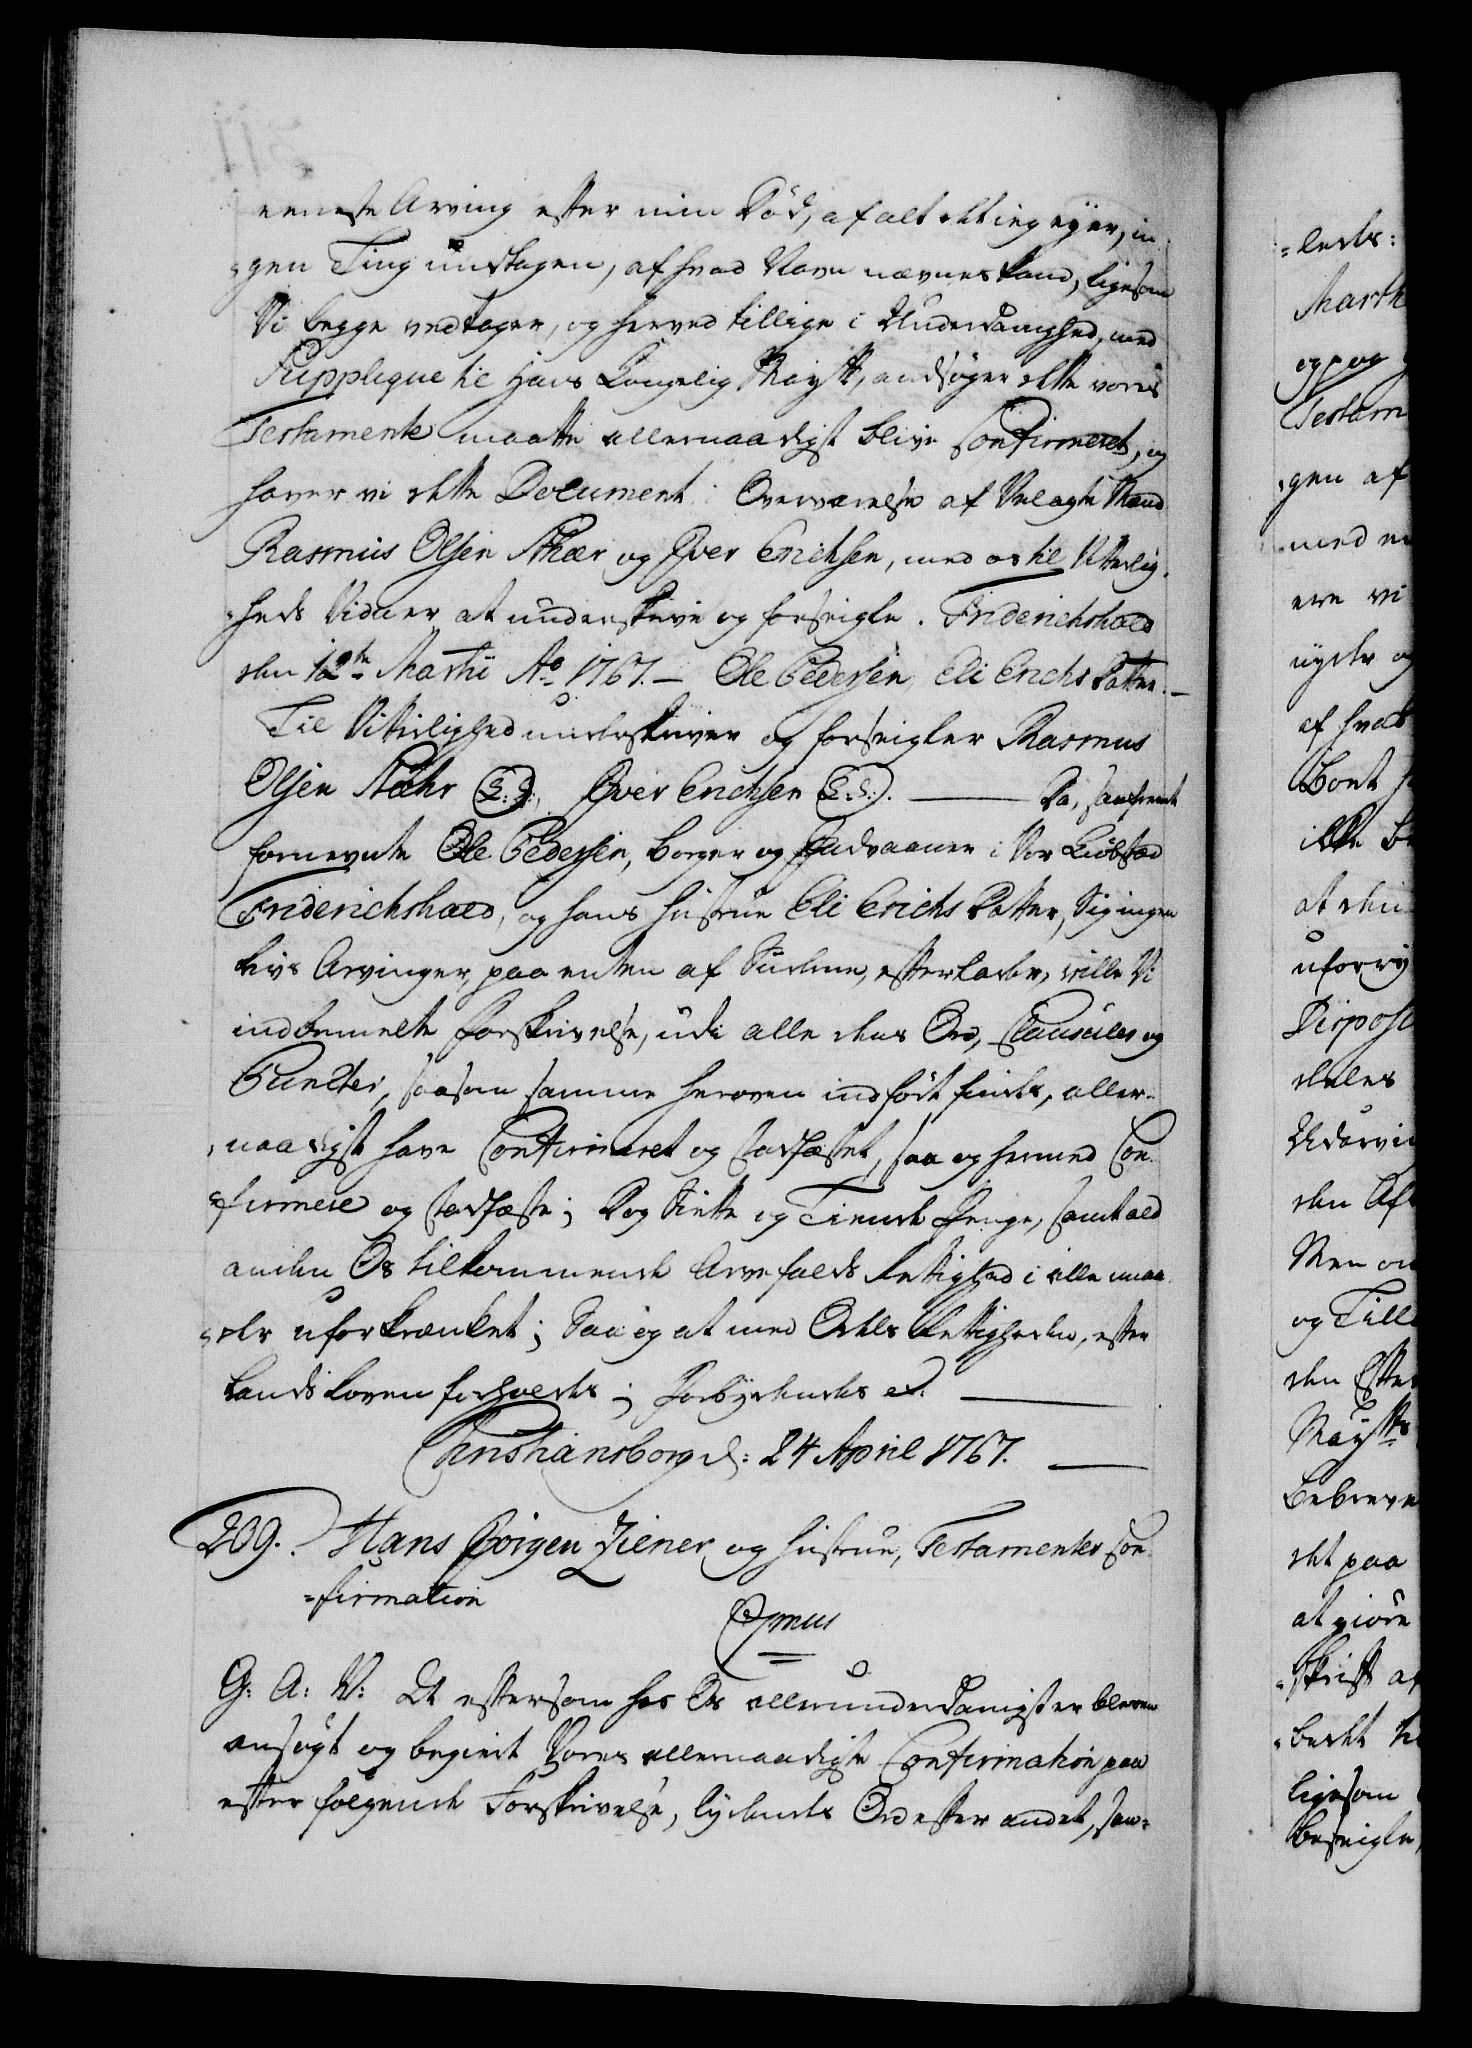 eeneste Arving efter min Død, af alt det ieg eÿer, in-
=gen Ting undtagen, af hvad Navn nævnes kand, ligesom
Vi begge vedtager, og herved tillige i Underdanighed, med
Supplique til Hans Kongelig Mayst, andsøger dette vores
Testamente maatte allernaadigst blive Confirmeret, og
haver vi dette Document i Overværelse af Velagte Mænd
Rasmus Olsen Kiær og Iver Erichsen, med os til Vitterlig-
=heds Vidner at underskrive og forseigle. Friderichshald
den 12te Martii Ao 1767. — Ole Pedersen, Eli Erichs Datter. —
Til Vitterlighed underskriver og forseigler Rasmus
Olsen (L: S:), Iver Erichsen (L: S:). — Da, saafremt
fornevnte Ole Pedersen, borger og Indvaaner i Vor Kiøbstæd
Friderichshald, og hans hustrue Eli Erichs Datter, Sig ingen
Livs Arvinger, paa enten af Siderne, efterlader, ville Vi
indbemelte forskrivelse, udi alle dens Ord, Clausuler og
Puncter, saasom samme heroven indført findes, aller-
=naadigst have Confirmeret og stadfæstet, saa og hermed Con-
=firmere og stadfæste; Dog Siette og Tiende Penge, samt ald
anden Os tilkommende Arvefalds Rettighed i alle maa-
=der uforkrænket; Saa og at med Odels Rettigheden, efter
Lands Loven forholdes; Forbydendes etc. —
Christiansborg d: 24 April 1767. —
209. Hans Jørgen Ziener og hustrue, Testamentes Con-
=firmation
G: A: V: At eftersom hos Os allerunderdanigst er bleven
ansøgt og begiert Vores allernaadigste Confirmation paa
efterfølgende Forskrivelse, lydendes Ord efter andet, saa=
=
=gen af
med
ere vi
nyde og
af hvad
ikke
at
Dispos
og Till
det paa
at giøre
ligesom